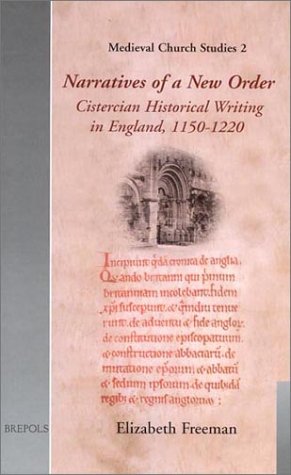 Medieval Church Studies 2
Narratives of a New Order
Cistercian Historical Writing
in England, 1150-1220
Incipiunt q̃dã cronica de anglia.
Quando britanni qui primum
britanniam incolebant. fidem
xp̃i susceperunt. & q̃ndiu tenue
runt. de aduentu & fide anglorum.
de constructione episcopatuum
& constructione abbaciarũ. de
mutatione eporum & abbatũ
& sedium ipsorum. de quibusdã
regibus & regnis anglorum.
BREPOLS
Elizabeth Freeman